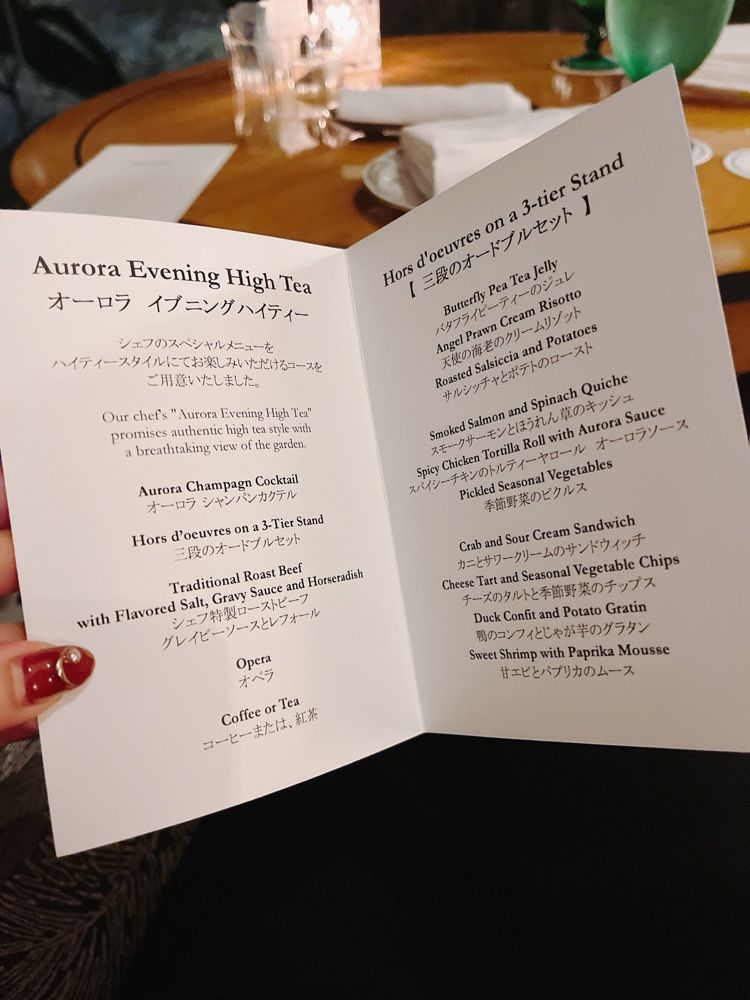 Aurora Evening High Tea
オーロラ イブニングハイティー
シェフのスペシャルメニューを
ハイティースタイルにてお楽しみいただけるコースを
ご用意いたしました。
Our chef's "Aurora Evening High Tea"
promises authentic high tea style with
a breathtaking view of the garden.
Aurora Champagn Cocktail
オーロラ シャンパンカクテル
Hors d'oeuvres on a 3-Tier Stand
三段のオードブルセット
Traditional Roast Beef
with Flavored Salt, Gravy Sauce and Horseradish
シェフ特製ローストビーフ
グレイビーソースとレフォール
Opera
オペラ
Coffee or Tea
コーヒーまたは、紅茶
Hors d'oeuvres on a 3-tier Stand
【 三段のオードブルセット 】
Butterfly Pea Tea Jelly
バタフライピーティーのジュレ
Angel Prawn Cream Risotto
天使の海老のクリームリゾット
Roasted Salsiccia and Potatoes
サルシッチャとポテトのロースト
Smoked Salmon and Spinach Quiche
スモークサーモンとほうれん草のキッシュ
Spicy Chicken Tortilla Roll with Aurora Sauce
スパイシーチキンのトルティーヤロール オーロラソース
Pickled Seasonal Vegetables
季節野菜のピクルス
Crab and Sour Cream Sandwich
カニとサワークリームのサンドウィッチ
Cheese Tart and Seasonal Vegetable Chips
チーズのタルトと季節野菜のチップス
Duck Confit and Potato Gratin
鴨のコンフィとじゃが芋のグラタン
Sweet Shrimp with Paprika Mousse
甘エビとパプリカのムース